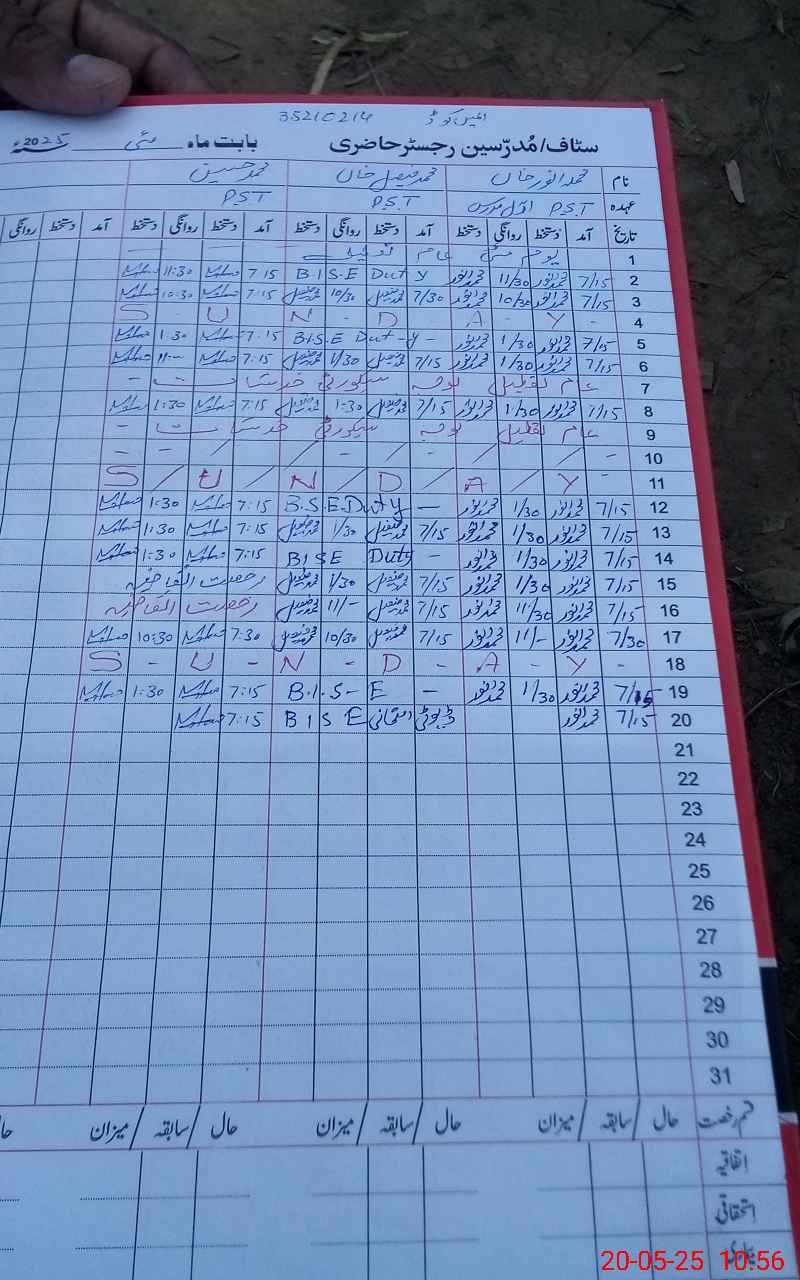 35210214
سٹاف/مُدرّسین رجسٹر حاضری بابت ماہ مئی 2025ء
نام محمد انور خان محمد فیصل خان محمد حسین
عہدہ P.S.T P.S.T PST
تاریخ آمد دستخط روانگی دستخط آمد دستخط روانگی دستخط آمد دستخط روانگی دستخط آمد دستخط روانگی
1 عام
2 7/15 محمد انور 11/30 محمد انور B I S E Duty 7:15 11:30
3 7/15 محمد انور 10/30 محمد انور 7/30 10/30 7:15 10:30
4 S - U - N - D - A - Y -
5 7/15 محمد انور 1/30 محمد انور B.I.S.E Duty - 7:15 1:30
6 7/15 محمد انور 1/30 محمد انور 7/15 1/30 7:15 11:-
7 عام تعطیل بوجہ سیکورٹی خدشات -
8 7/15 محمد انور 1/30 محمد انور 7/15 1:30 7:15 1:30
9 عام تعطیل بوجہ سیکورٹی خدشات -
10
11 S / U / N / D / A / Y
12 7/15 محمد انور 1/30 محمد انور B.S.E Duty - 7:15 1:30
13 7/15 محمد انور 1/30 محمد انور 7/15 1/30 7:15 1:30
14 7/15 محمد انور 1/30 محمد انور BISE Duty - 7:15 1:30
15 7/15 محمد انور 1/30 محمد انور 7/15 1/30 رخصت اتفاقیہ
16 7/15 محمد انور 11/30 محمد انور 7/15 11/- رخصت اتفاقیہ
17 7/30 محمد انور 11/- محمد انور 7/15 10/30 7:30 10:30
18 S - U - N - D - A - Y -
19 7/15 محمد انور 1/30 محمد انور B.I.S-E - 7:15 1:30
20 7/15 محمد انور B I S E ڈیوٹی امتحانی 7:15
21
22
23
24
25
26
27
28
29
30
31
قسم رخصت حال / سابقہ / میزان حال / سابقہ / میزان حال / سابقہ / میزان
اتفاقیہ
استحقاقی
بیماری
20-05-25 10:56